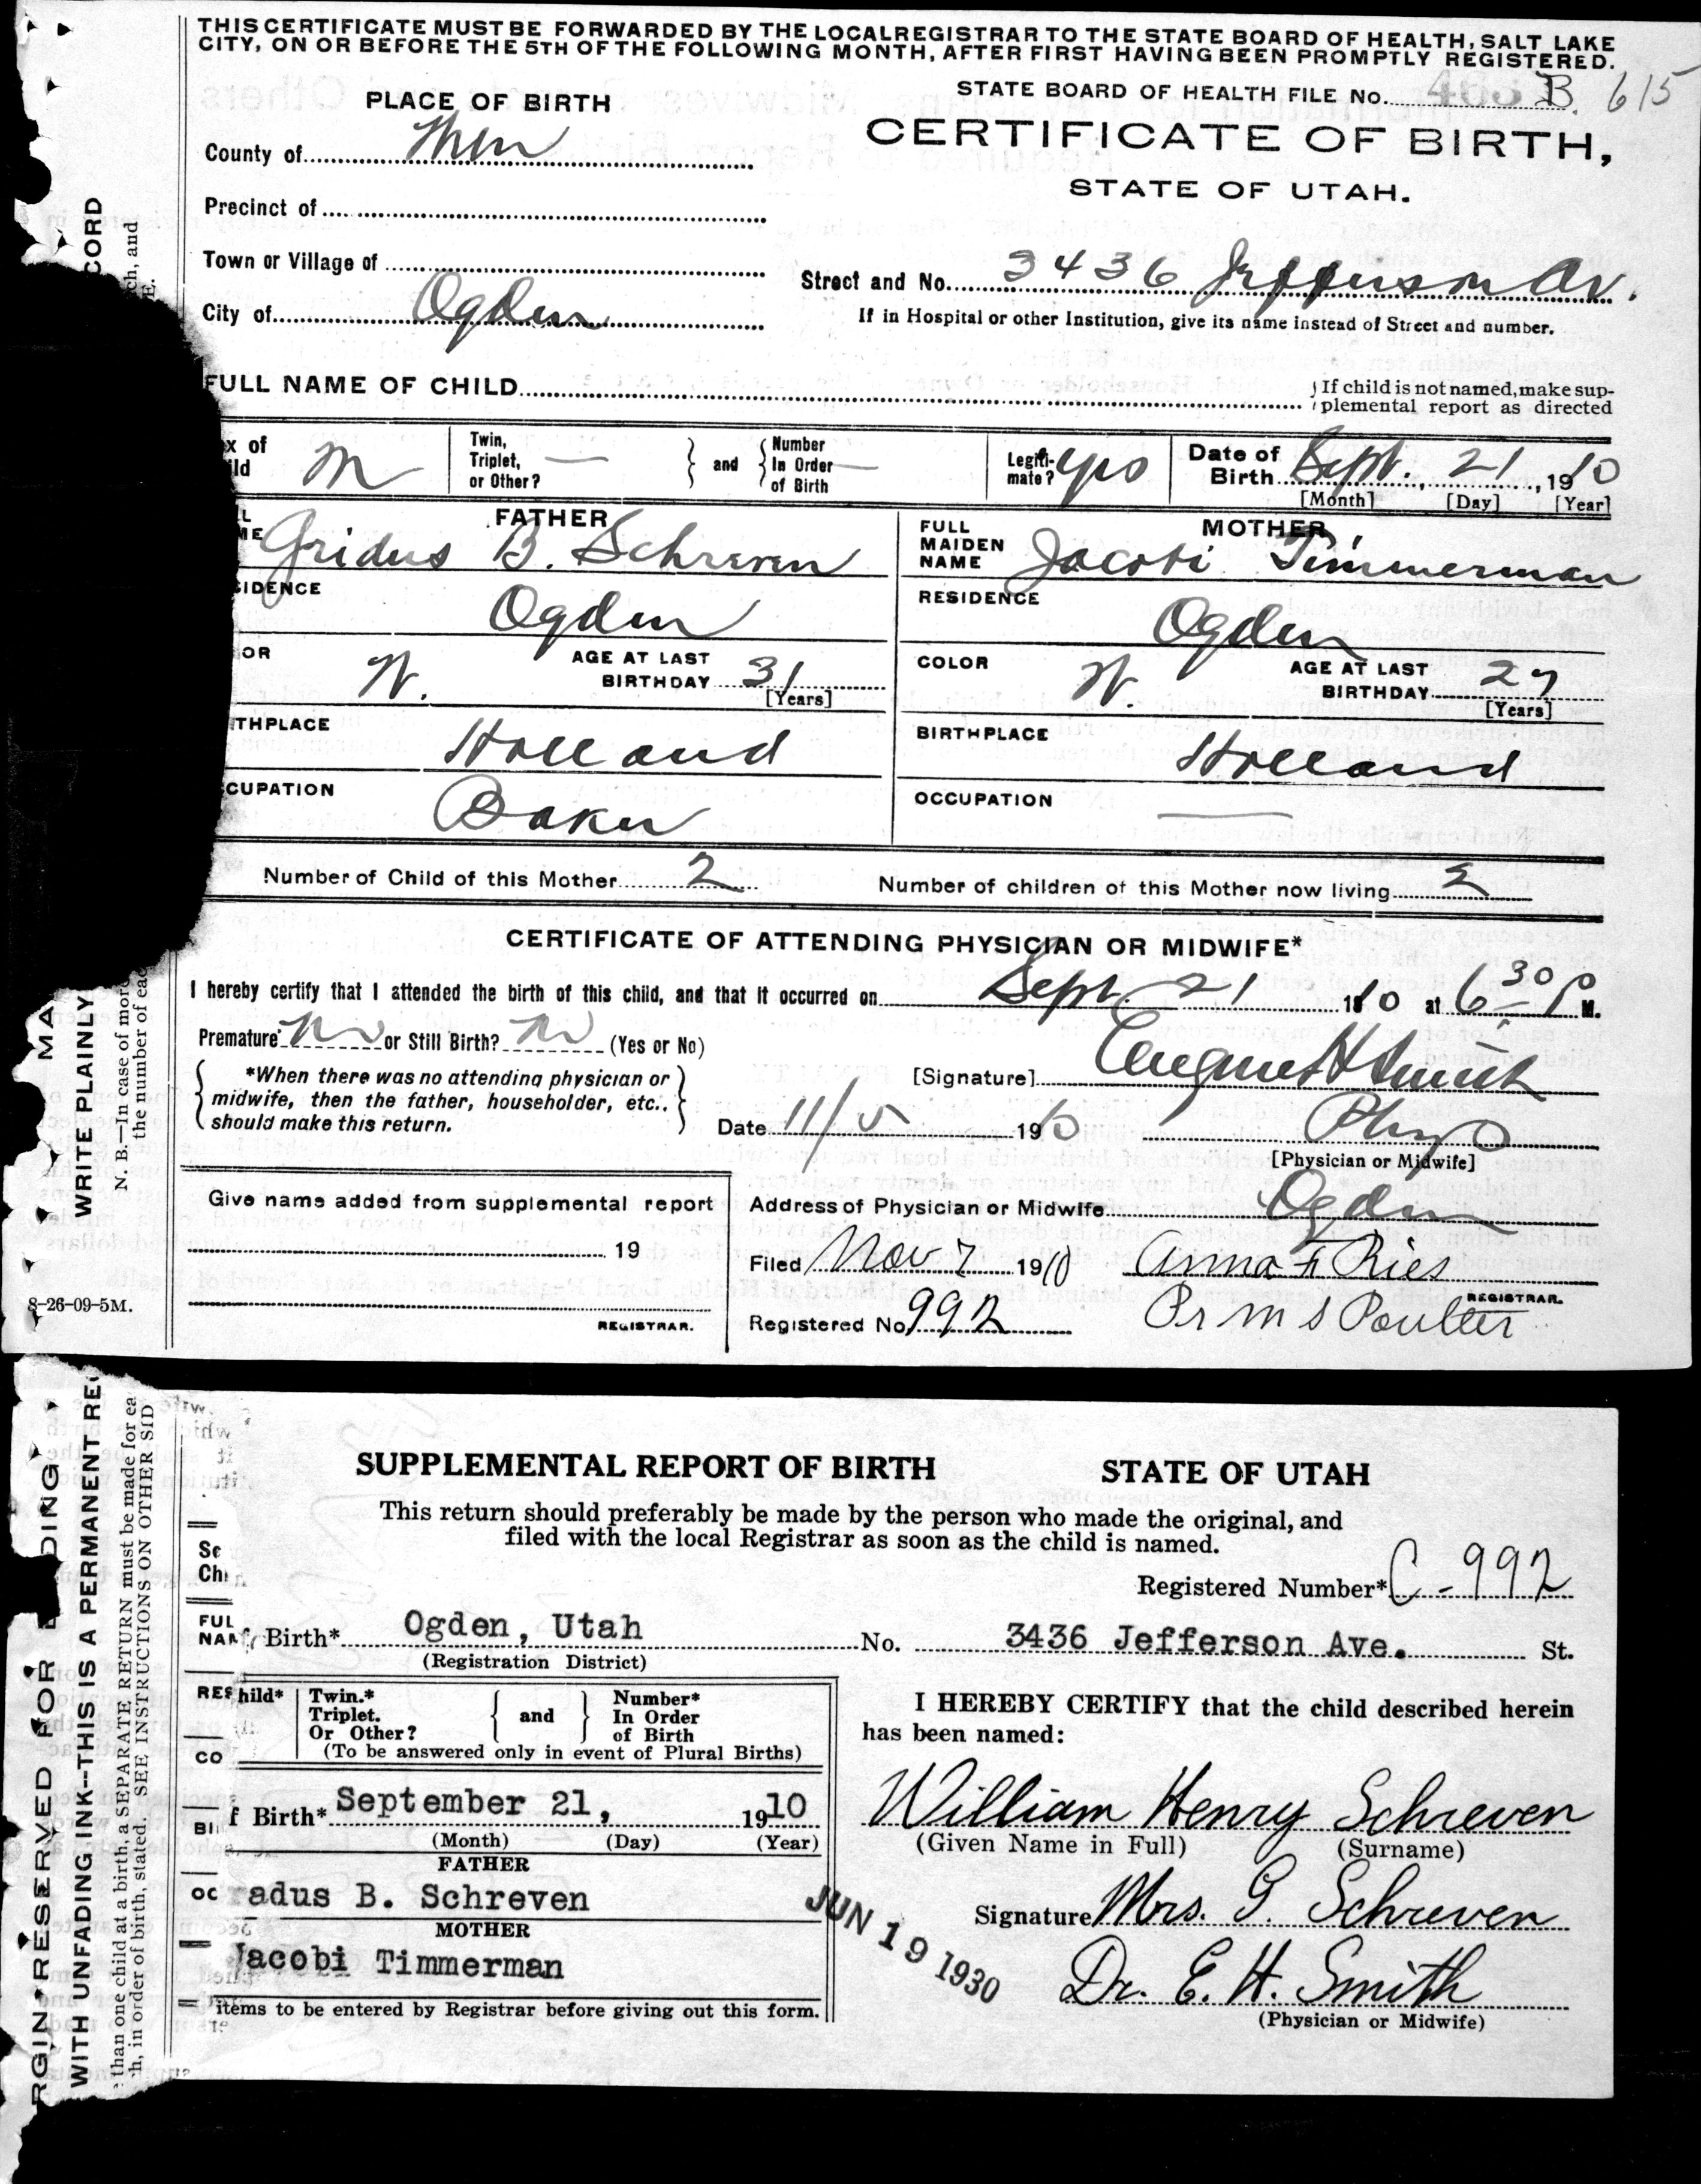 THIS CERTIFICATE MUST BE FORWARDED BY THE LOCAL REGISTRAR TO THE STATE BOARD OF HEALTH, SALT LAKE
CITY, ON OR BEFORE THE 5TH OF THE FOLLOWING MONTH, AFTER FIRST HAVING BEEN PROMPTLY REGISTERED.
STATE BOARD OF HEALTH FILE No. B. 615
PLACE OF BIRTH
CERTIFICATE OF BIRTH,
STATE OF UTAH.
County of
Precinct of
Town or Village of
Street and No. 3436 Jefferson Av.
City of Ogden
If in Hospital or other Institution, give its name instead of Street and number.
FULL NAME OF CHILD
If child is not named, make sup-
plemental report as directed
x of
ild M
Twin,
Triplet,
or Other? —
and
Number
In Order —
of Birth
Legiti-
mate? yes
Date of
Birth Sept. 21, 1910
[Month] [Day] [Year]
FATHER
L
ME Gridus B. Schreven
MOTHER
FULL
MAIDEN
NAME Jacobi Timmerman
SIDENCE Ogden
RESIDENCE Ogden
OR W.
AGE AT LAST
BIRTHDAY 31
[Years]
COLOR W.
AGE AT LAST
BIRTHDAY 27
[Years]
THPLACE Holland
BIRTHPLACE Holland
CUPATION Baker
OCCUPATION —
Number of Child of this Mother 2
Number of children of this Mother now living 2
CERTIFICATE OF ATTENDING PHYSICIAN OR MIDWIFE*
I hereby certify that I attended the birth of this child, and that it occurred on Sept. 21 1910 at 6 30 P M.
Premature No or Still Birth? No (Yes or No)
*When there was no attending physician or
midwife, then the father, householder, etc.,
should make this return.
[Signature] Eugene H Smith
Date 11/5 1910
Phys
[Physician or Midwife]
Give name added from supplemental report
19
REGISTRAR.
Address of Physician or Midwife Ogden
Filed Nov 7 1910 Anna F Ries
REGISTRAR.
Registered No 992 Pr M S Poulter
8-26-09-5M.
CORD
ch, and
E.
MA
WRITE PLAINLY
N. B.—In case of more
the number of eac
RGIN RESERVED FOR DING
WITH UNFADING INK--THIS IS A PERMANENT REC
than one child at a birth, a SEPARATE RETURN must be made for ea
h, in order of birth, stated. SEE INSTRUCTIONS ON OTHER SID
SUPPLEMENTAL REPORT OF BIRTH
STATE OF UTAH
This return should preferably be made by the person who made the original, and
filed with the local Registrar as soon as the child is named.
Registered Number* C-992
Se
Chi
FUL
NAM
Birth* Ogden, Utah No. 3436 Jefferson Ave. St.
(Registration District)
RES
hild*
Twin.*
Triplet.
Or Other?
and
Number*
In Order
of Birth
(To be answered only in event of Plural Births)
CO
I HEREBY CERTIFY that the child described herein
has been named:
f Birth* September 21, 1910
(Month) (Day) (Year)
BI
William Henry Schreven
(Given Name in Full) (Surname)
FATHER
OC
radus B. Schreven
MOTHER
Jacobi Timmerman
items to be entered by Registrar before giving out this form.
JUN 19 1930
Signature Mrs. G. Schreven
Dr. E. H. Smith
(Physician or Midwife)